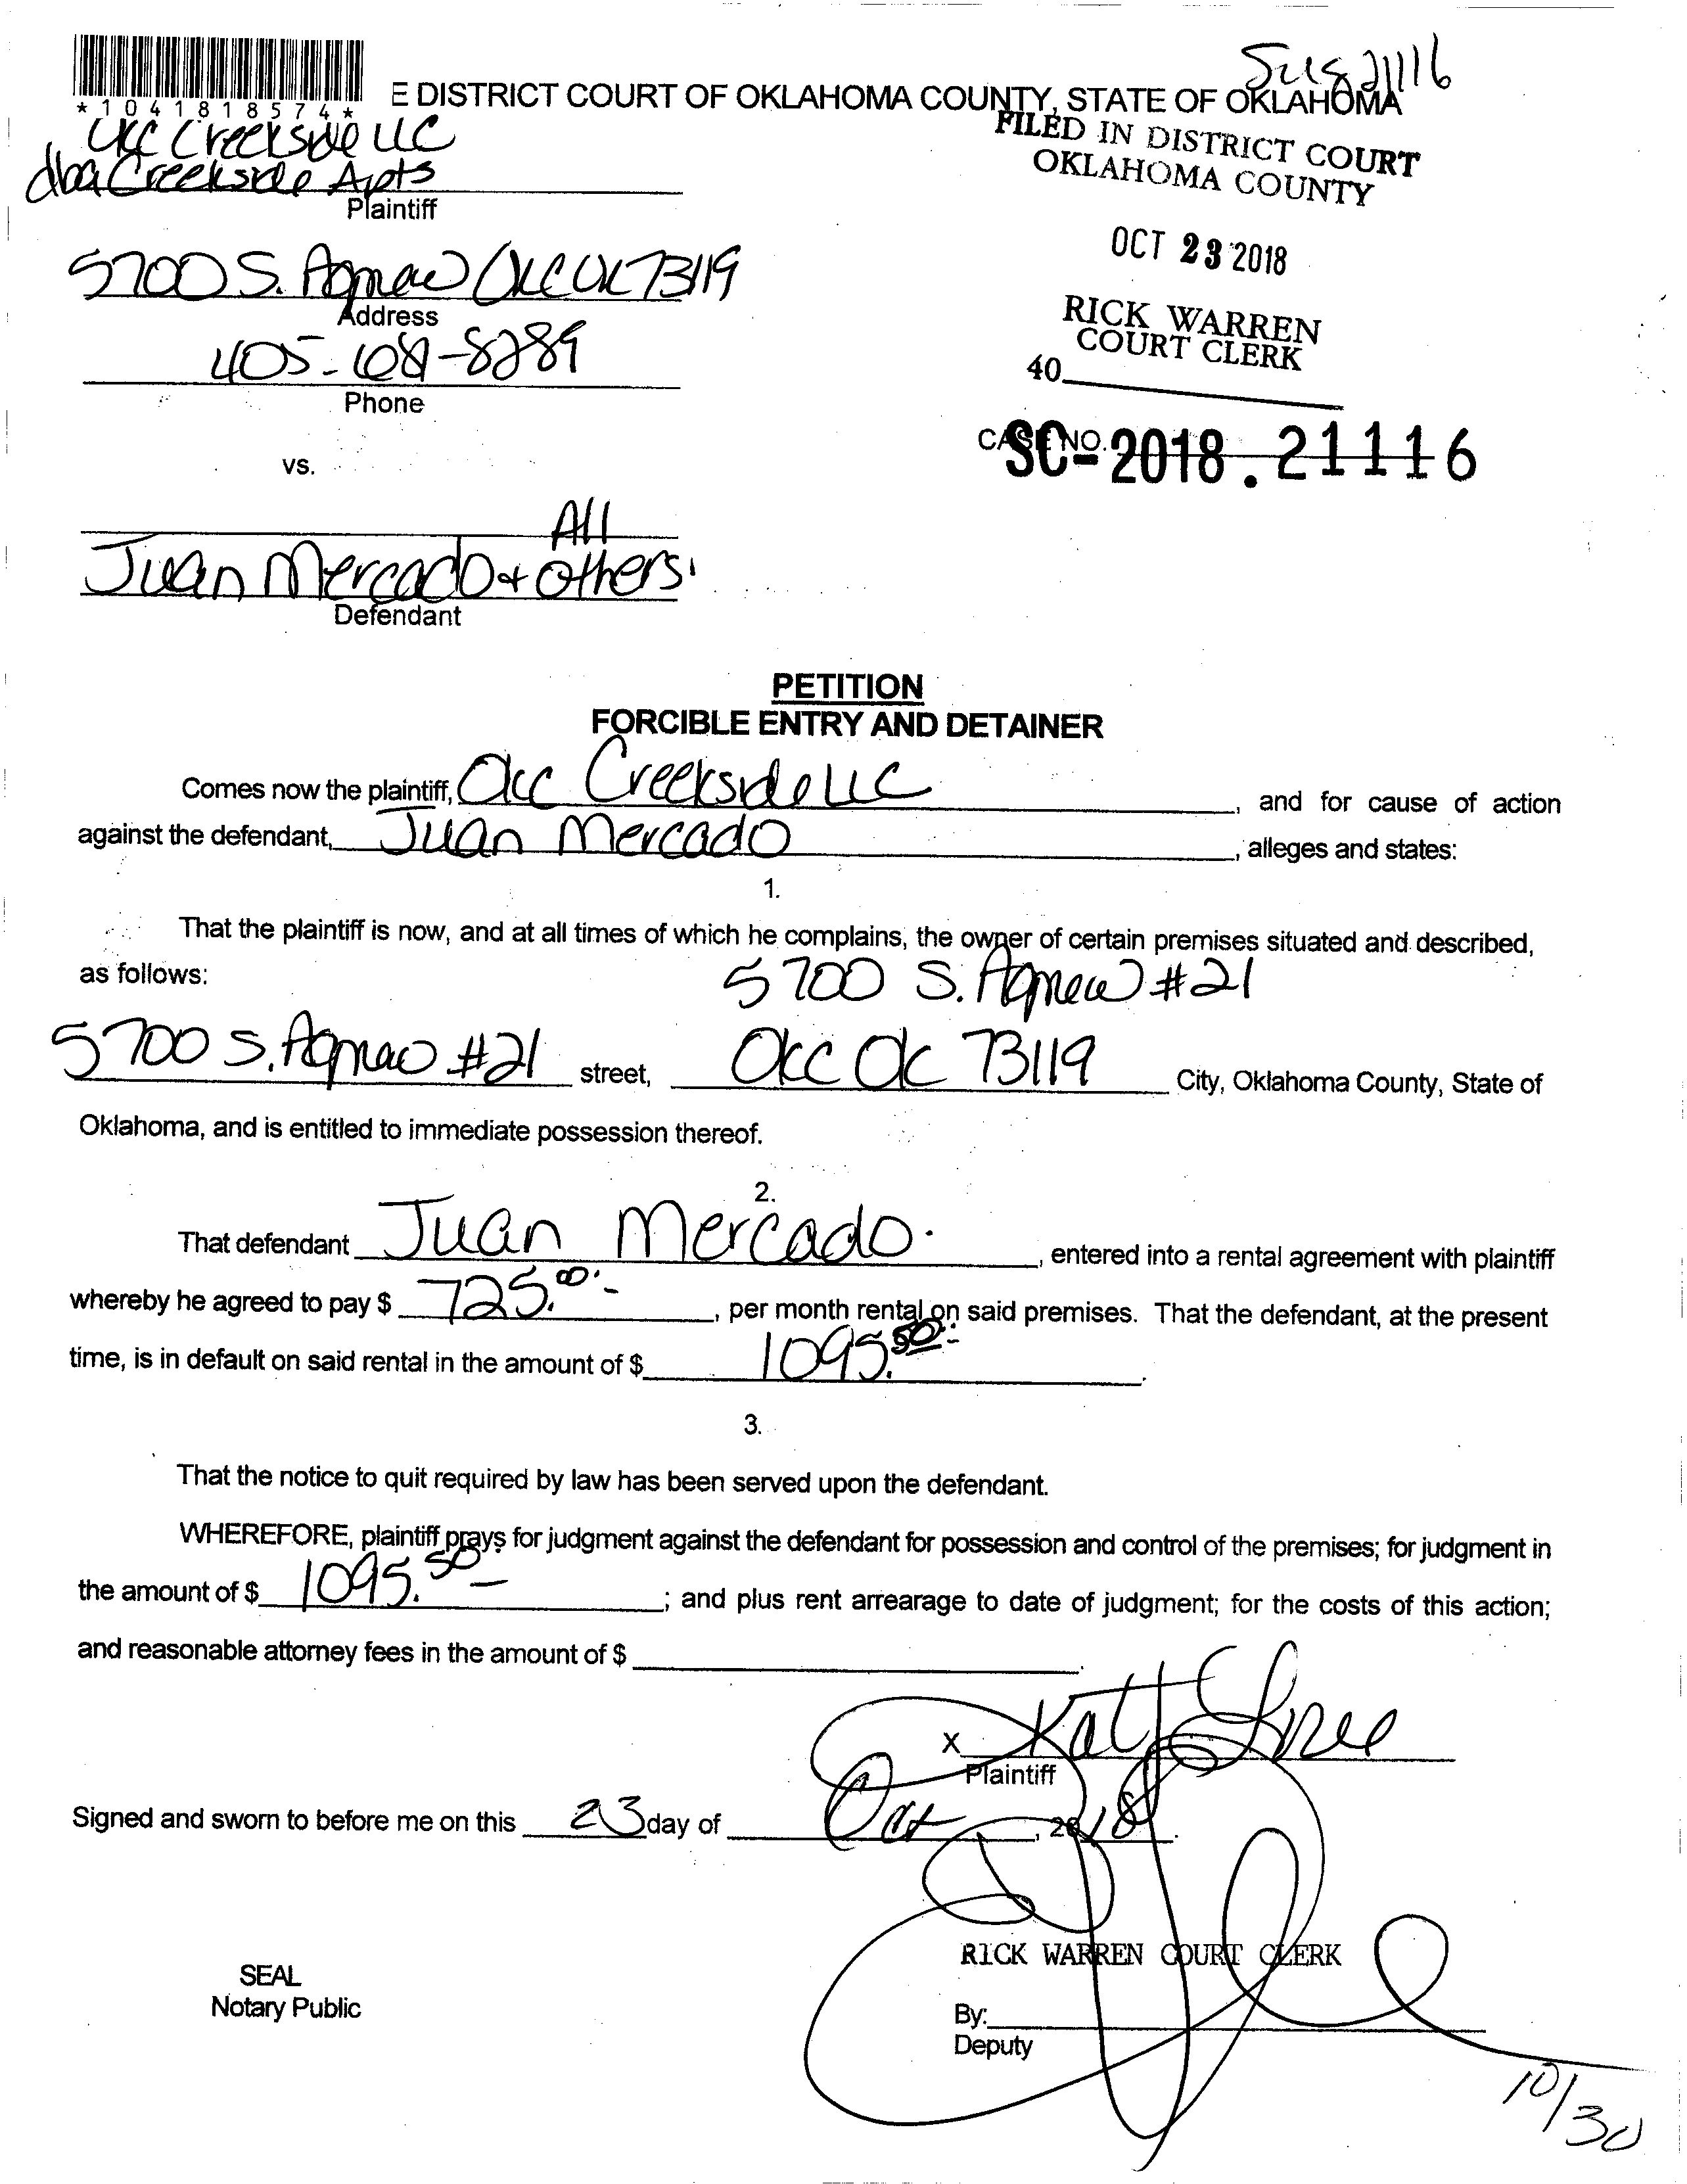 *1041818574*
E DISTRICT COURT OF OKLAHOMA COUNTY, STATE OF OKLAHOMA
FILED IN DISTRICT COURT
OKLAHOMA COUNTY
OKC Creekside LLC
dba Creekside Apts
Plaintiff
OCT 23 2018
5700 S. Agnew OKC OK 73119
Address
RICK WARREN
COURT CLERK
40
Phone
CASE NO.
SC-2018.21116
vs.
All
Juan Mercado + others
Defendant
PETITION
FORCIBLE ENTRY AND DETAINER
Comes now the plaintiff, OKC Creekside LLC, and for cause of action
against the defendant, Juan Mercado, alleges and states:
1.
That the plaintiff is now, and at all times of which he complains, the owner of certain premises situated and described,
as follows: 5700 S. Agnew #21
5700 S. Agnew #21 street, OKC OK 73119 City, Oklahoma County, State of
Oklahoma, and is entitled to immediate possession thereof.
2.
That defendant Juan Mercado, entered into a rental agreement with plaintiff
whereby he agreed to pay $ 725.00, per month rental on said premises. That the defendant, at the present
time, is in default on said rental in the amount of $ 1095.50.
3.
That the notice to quit required by law has been served upon the defendant.
WHEREFORE, plaintiff prays for judgment against the defendant for possession and control of the premises; for judgment in
the amount of $ 1095.50; and plus rent arrearage to date of judgment; for the costs of this action;
and reasonable attorney fees in the amount of $
X
Plaintiff
Signed and sworn to before me on this 23 day of Oct, 2018.
RICK WARREN COURT CLERK
SEAL
Notary Public
By:
Deputy
10/30